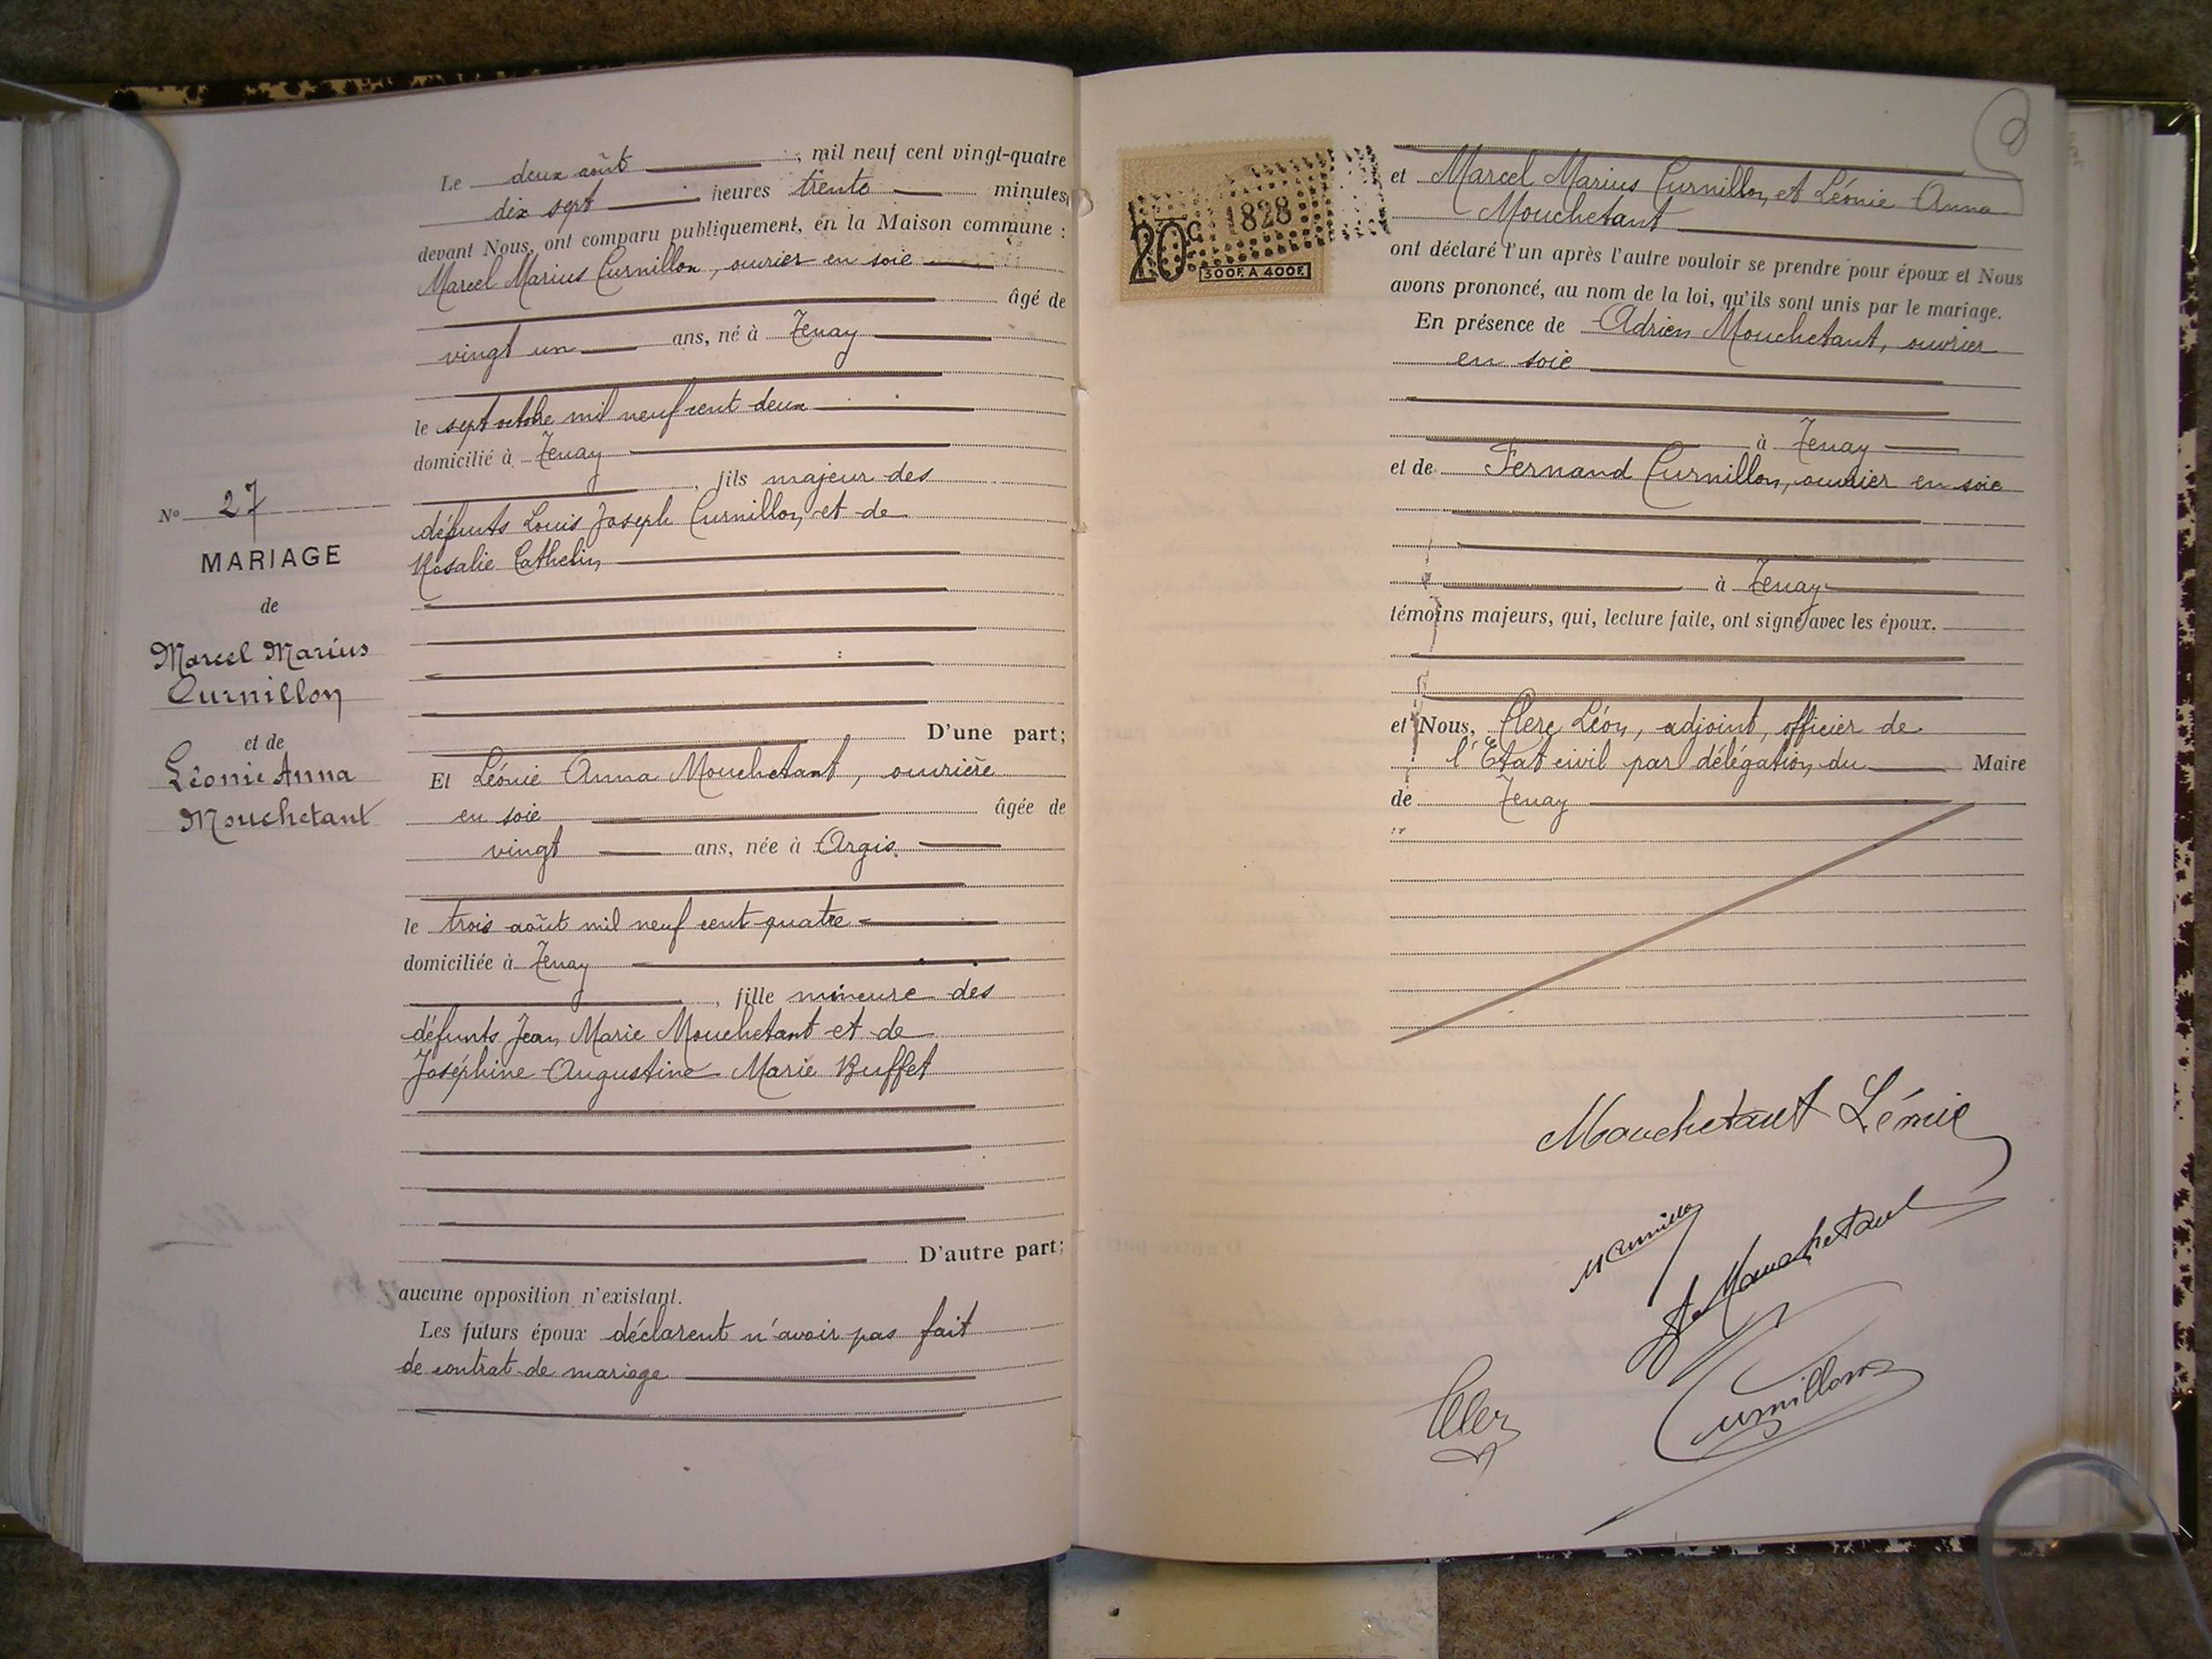 N° 27
MARIAGE
de
Marcel Marius
Curnillon
et de
Léonie Anna
Mouchetant
Le deux août, mil neuf cent vingt-quatre
dix sept heures trente minutes
devant Nous, ont comparu publiquement, en la Maison commune :
Marcel Marius Curnillon, ouvrier en soie
âgé de
vingt un ans, né à Tenay
le sept octobre mil neuf cent deux
domicilié à Tenay
, fils majeur des
défunts Louis Joseph Curnillon et de
Rosalie Cathelin
D'une part;
Et Léonie Anna Mouchetant, ouvrière
en soie âgée de
vingt ans, née à Argis
le trois août mil neuf cent quatre
domiciliée à Tenay
, fille mineure des
défunts Jean Marie Mouchetant et de
Joséphine Augustine Marie Buffet
D'autre part;
aucune opposition n'existant.
Les futurs époux déclarent n'avoir pas fait
de contrat de mariage
1828
20c
300F. A 400F.
et Marcel Marius Curnillon et Léonie Anna
Mouchetant
ont déclaré l'un après l'autre vouloir se prendre pour époux et Nous
avons prononcé, au nom de la loi, qu'ils sont unis par le mariage.
En présence de Adrien Mouchetant, ouvrier
en soie
à Tenay
et de Fernand Curnillon, ouvrier en soie
à Tenay
témoins majeurs, qui, lecture faite, ont signé avec les époux.
et Nous, Clerc Léon, adjoint, officier de
l'Etat civil par délégation du Maire
de Tenay
Mouchetant Léonie
M Curnillon
A Mouchetant
Curnillon
Clerc